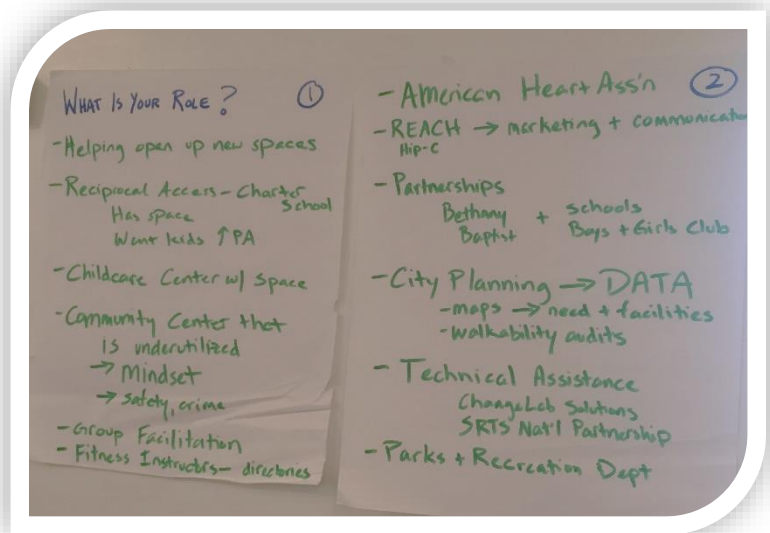 WHAT IS YOUR ROLE? ①
-Helping open up new spaces
-Reciprocal Access- Charter
School
Has space
Want kids ↑PA
-Childcare Center w/ space
-Community Center that
is underutilized
→ Mindset
→ safety, crime
-Group Facilitation
- Fitness Instructors- directories
- American Heart Ass'n ②
-REACH → marketing + communication
Hip-C
- Partnerships
Bethany + Schools
Baptist Boys + Girls Club
-City Planning → DATA
-maps → need + facilities
-walkability audits
- Technical Assistance
ChangeLab Solutions
SRTS Nat'l Partnership
- Parks + Recreation Dept